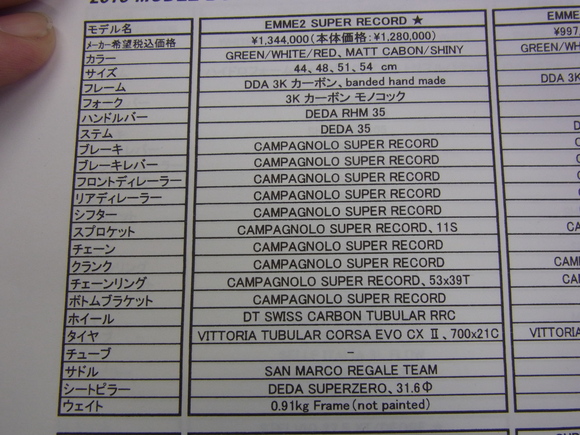 モデル名 EMME2 SUPER RECORD ★ EMME
メーカー希望税込価格 ¥1,344,000(本体価格:¥1,280,000) ¥997
カラー GREEN/WHITE/RED、MATT CABON/SHINY GREEN/WH
サイズ 44、48、51、54 cm
フレーム DDA 3K カーボン、banded hand made DDA 3K
フォーク 3K カーボン モノコック
ハンドルバー DEDA RHM 35
ステム DEDA 35
ブレーキ CAMPAGNOLO SUPER RECORD
ブレーキレバー CAMPAGNOLO SUPER RECORD
フロントディレーラー CAMPAGNOLO SUPER RECORD
リアディレーラー CAMPAGNOLO SUPER RECORD
シフター CAMPAGNOLO SUPER RECORD
スプロケット CAMPAGNOLO SUPER RECORD、11S CA
チェーン CAMPAGNOLO SUPER RECORD
クランク CAMPAGNOLO SUPER RECORD CAMP
チェーンリング CAMPAGNOLO SUPER RECORD、53x39T CAMPA
ボトムブラケット CAMPAGNOLO SUPER RECORD
ホイール DT SWISS CARBON TUBULAR RRC
タイヤ VITTORIA TUBULAR CORSA EVO CX Ⅱ、700x21C VITTORIA
チューブ -
サドル SAN MARCO REGALE TEAM
シートピラー DEDA SUPERZERO、31.6Φ DE
ウェイト 0.91kg Frame(not painted)